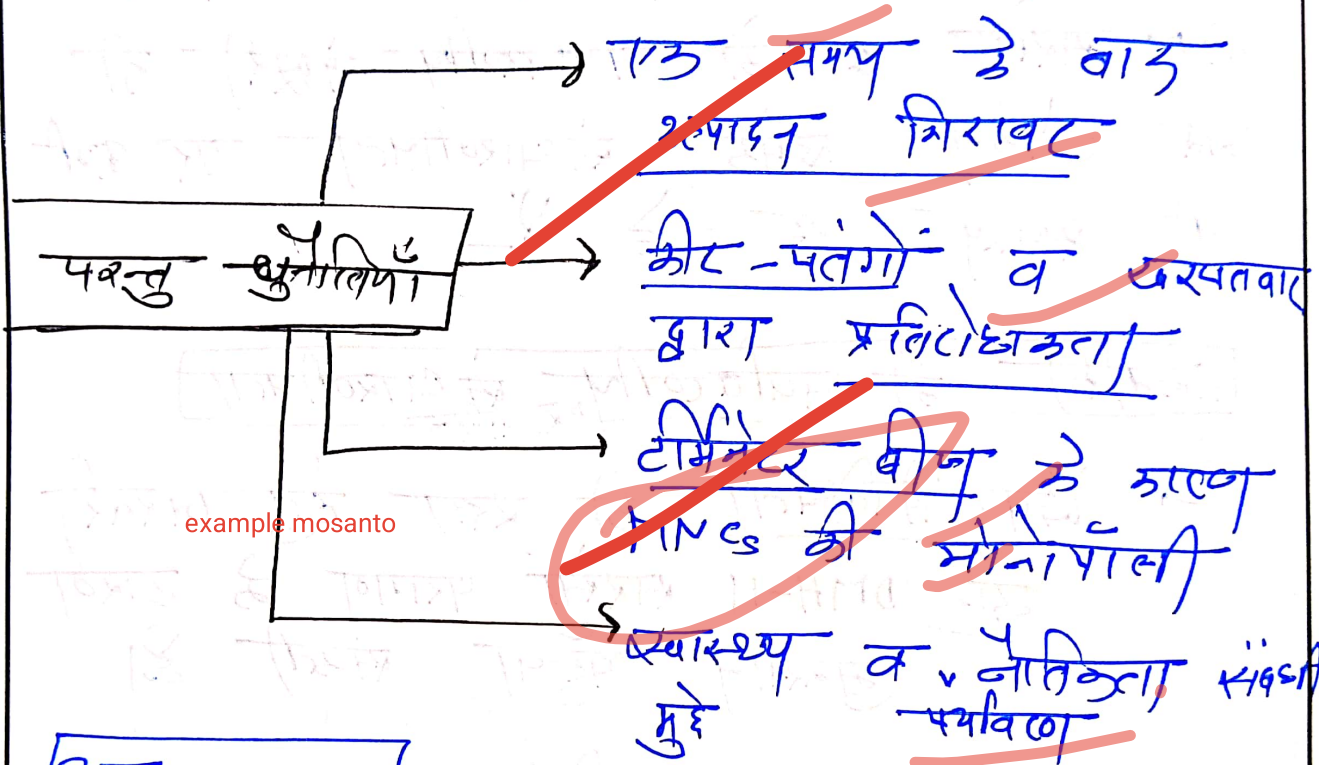 एक समय के बाद
उत्पादन गिरावट
परन्तु चुनौतियाँ
कीट-पतंगों व खरपतवार
द्वारा प्रतिरोधकता
टर्मिनेटर बीज के कारण
MNCs की मोनोपॉली
example mosanto
स्वास्थ्य व नैतिकता संबंधी
मुद्दे पर्यावरण